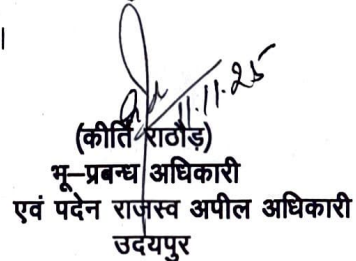 ।
11.11.25
(कीर्ति राठौड़)
भू–प्रबन्ध अधिकारी
एवं पदेन राजस्व अपील अधिकारी
उदयपुर